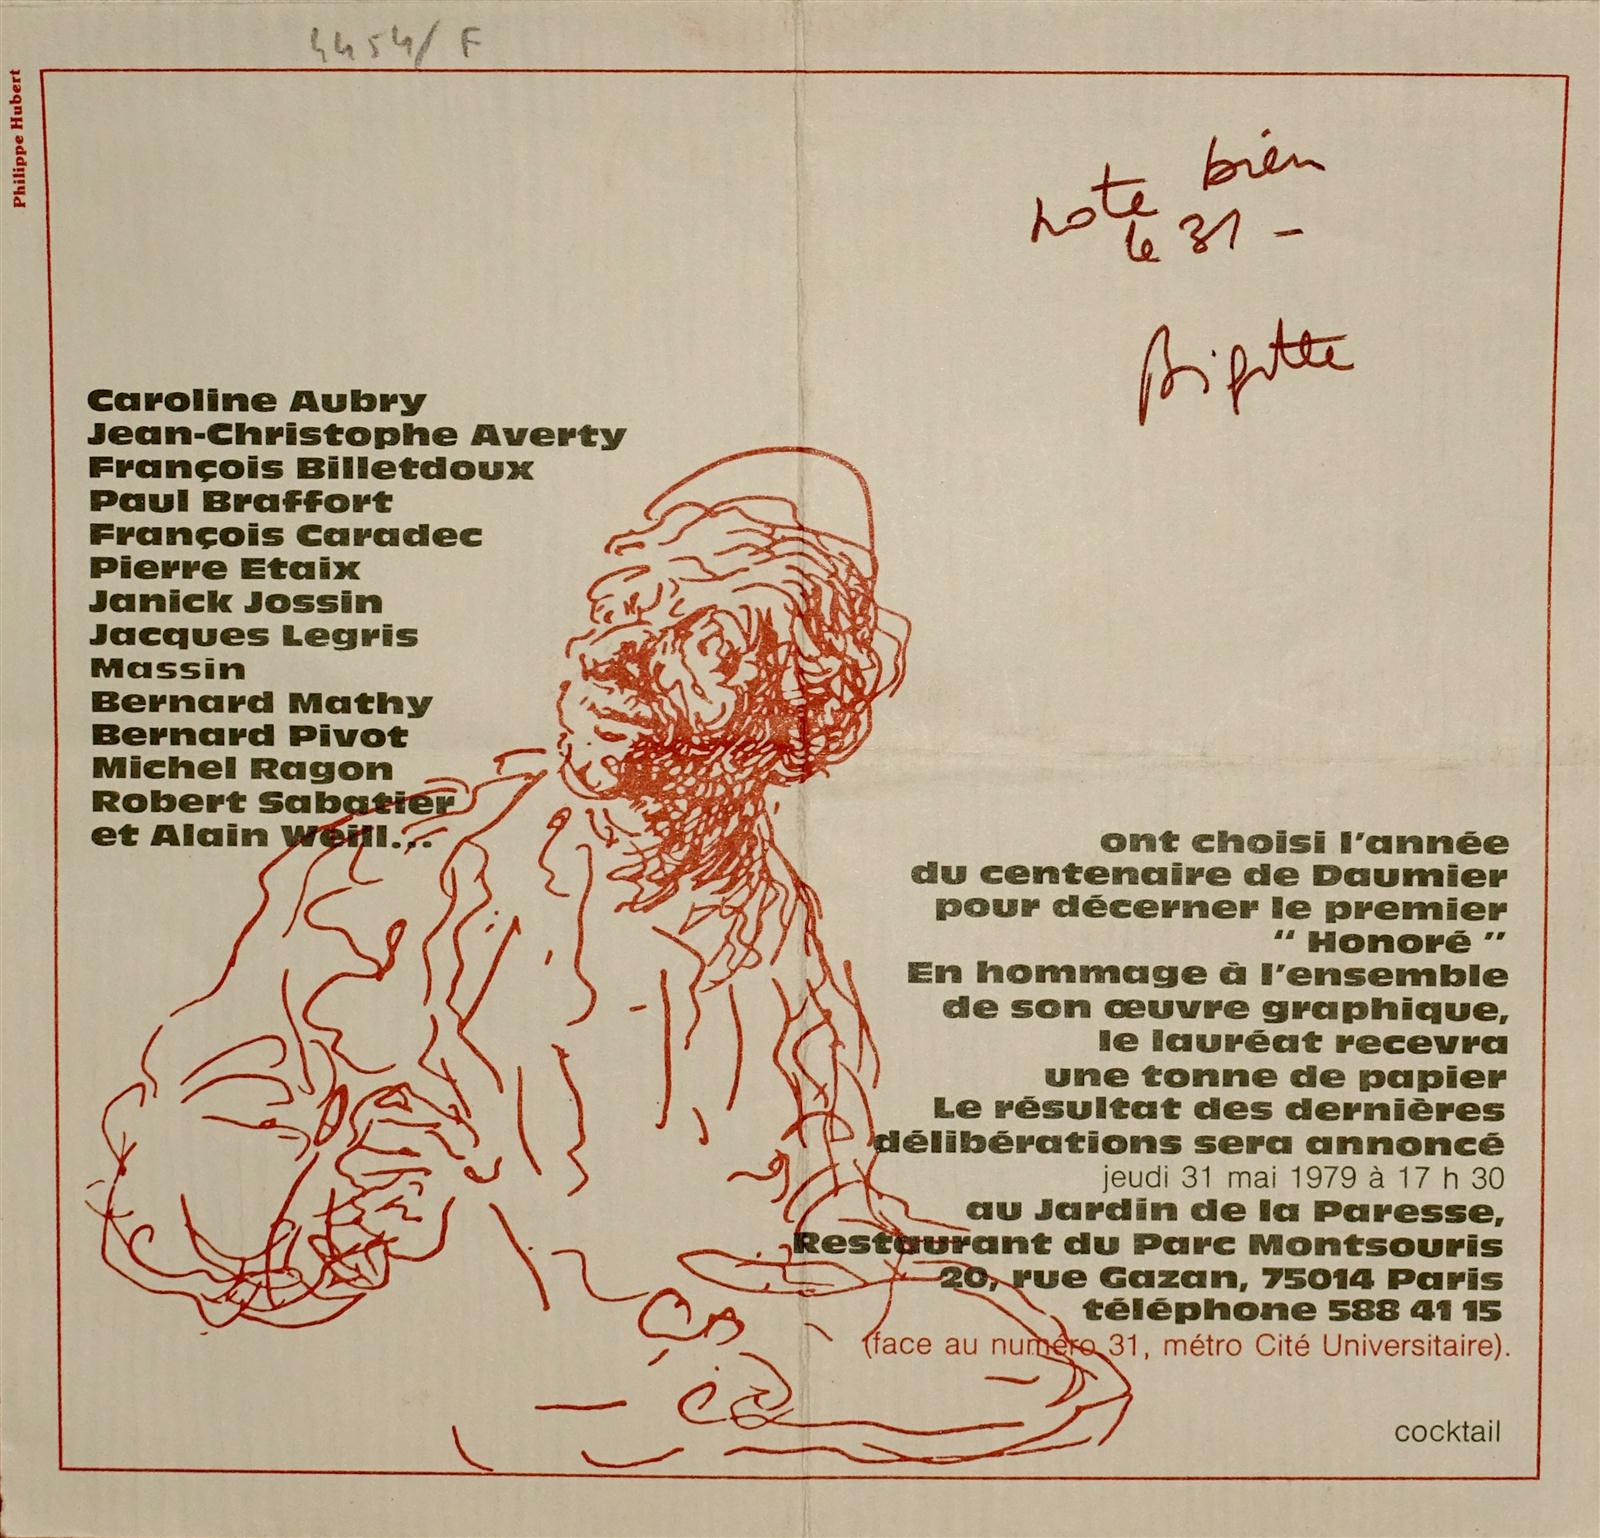 4454/F
Philippe Hubert
note bien
le 31 -
Brigitte
Caroline Aubry
Jean-Christophe Averty
François Billetdoux
Paul Braffort
François Caradec
Pierre Etaix
Janick Jossin
Jacques Legris
Massin
Bernard Mathy
Bernard Pivot
Michel Ragon
Robert Sabatier
et Alain Weill...
ont choisi l'année
du centenaire de Daumier
pour décerner le premier
“ Honoré ”
En hommage à l'ensemble
de son œuvre graphique,
le lauréat recevra
une tonne de papier
Le résultat des dernières
délibérations sera annoncé
jeudi 31 mai 1979 à 17 h 30
au Jardin de la Paresse,
Restaurant du Parc Montsouris
20, rue Gazan, 75014 Paris
téléphone 588 41 15
(face au numéro 31, métro Cité Universitaire).
cocktail